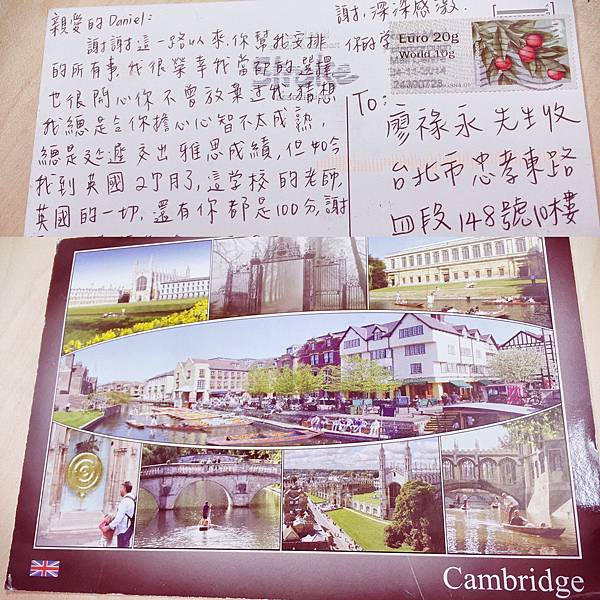 親愛的Daniel:
謝謝這一路以來,你幫我安排
的所有事,我很榮幸我當初的選擇
也很開心你不曾放棄過我,猜想
我總是令你擔心心智不太成熟,
總是延遲交出雅思成績,但如今
我到英國2個月了,這學校的老師,
英國的一切,還有你都是100分,謝
謝,深深感激.
你的學
Euro 20g
World 10g
To:
廖祿永 先生收
台北市忠孝東路
四段148號10樓
Cambridge